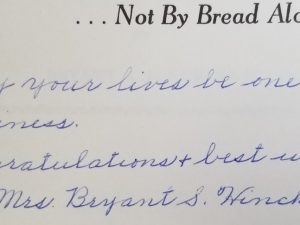 ... Not By Bread Alo
your lives be one
iness.
ratulations + best
Mrs. Bryant S. Winch